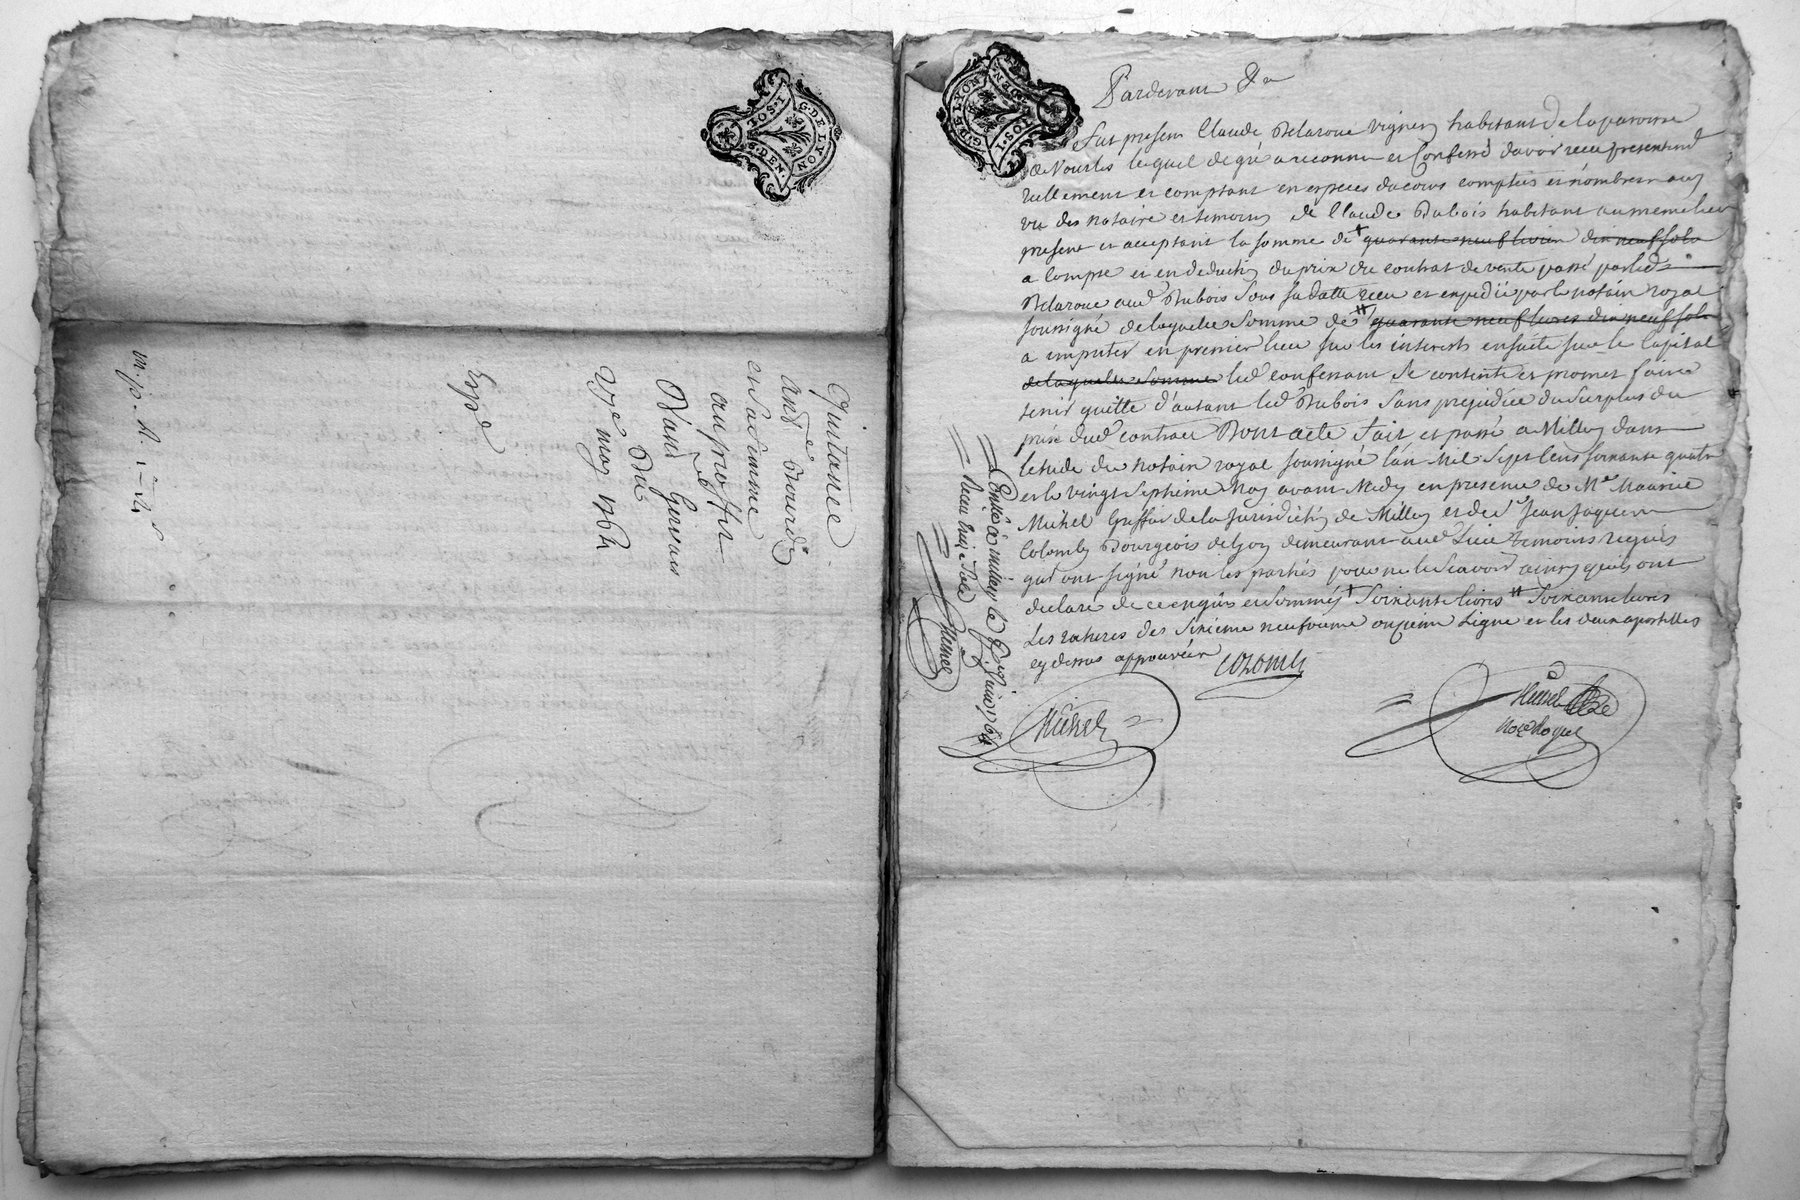 G. DE LYON
I. SOL
G. DEN
Quittance
en sa femme
au proffit
Gervais
Du
27e may 1764
Expé
G. DE LYON
I. SOL
Pardevant &a
Fut present Claude Delaroue vigneron habitant de la paroisse
de Vourles lequel de gré a reconnu et Confessé davoir receu presentement
reellement et comptant en especes du cours comptées et nombrées au
vu des notaire et temoins de Claude Dubois habitant au meme lieu
present et acceptant la somme de + quarante neuf livres dix neuf sols
a Compte et en deduction du prix du contrat de vente passé par led
Delaroue aud Dubois Sous sa datte receu et expedié par le notaire royal
soussigné de laquelle Somme de ++ quarante neuf livres dix neuf sols
a imputer en premier lieu sur les interets ensuite sur le Capital
de laquelle Somme led confessant Se contente et promet faire
tenir quitte d'autant led Dubois Sans prejudice du Surplus du
prix dud contract Dont acte Fait et passé a Millery dans
letude du notaire royal soussigné l'an Mil Sept Cens soixante quatre
et le vingt Septieme May avant Midy en presence de Me Maurice
Michel Greffier de la Jurisdiction de Millery et de sr Jean Jaques
Colomb Bourgeois de Lyon demeurant aud Lieu temoins requis
qui ont signé non les parties pour ne le Scavoir ainsy quils ont
declaré de ce enquis et Sommés + Soixante livres ++ Soixante livres
Les ratures des Sixieme neufvieme onzieme Ligne et les deux apostilles
cy dessus approuvées
Colomb
Michel
Nore Royal
Controllé à millery le Juin 1764
Receu Sols